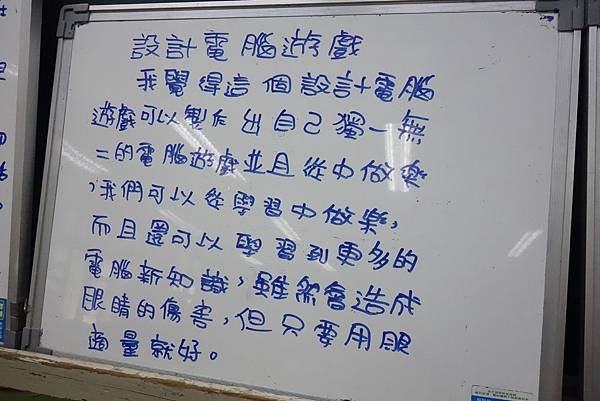 設計電腦遊戲
我覺得這個設計電腦
遊戲可以製作出自己獨一無
二的電腦遊戲並且從中做樂
，我們可以從學習中做樂，
而且還可以學習到更多的
電腦新知識，雖然會造成
眼睛的傷害，但只要用眼
適量就好。